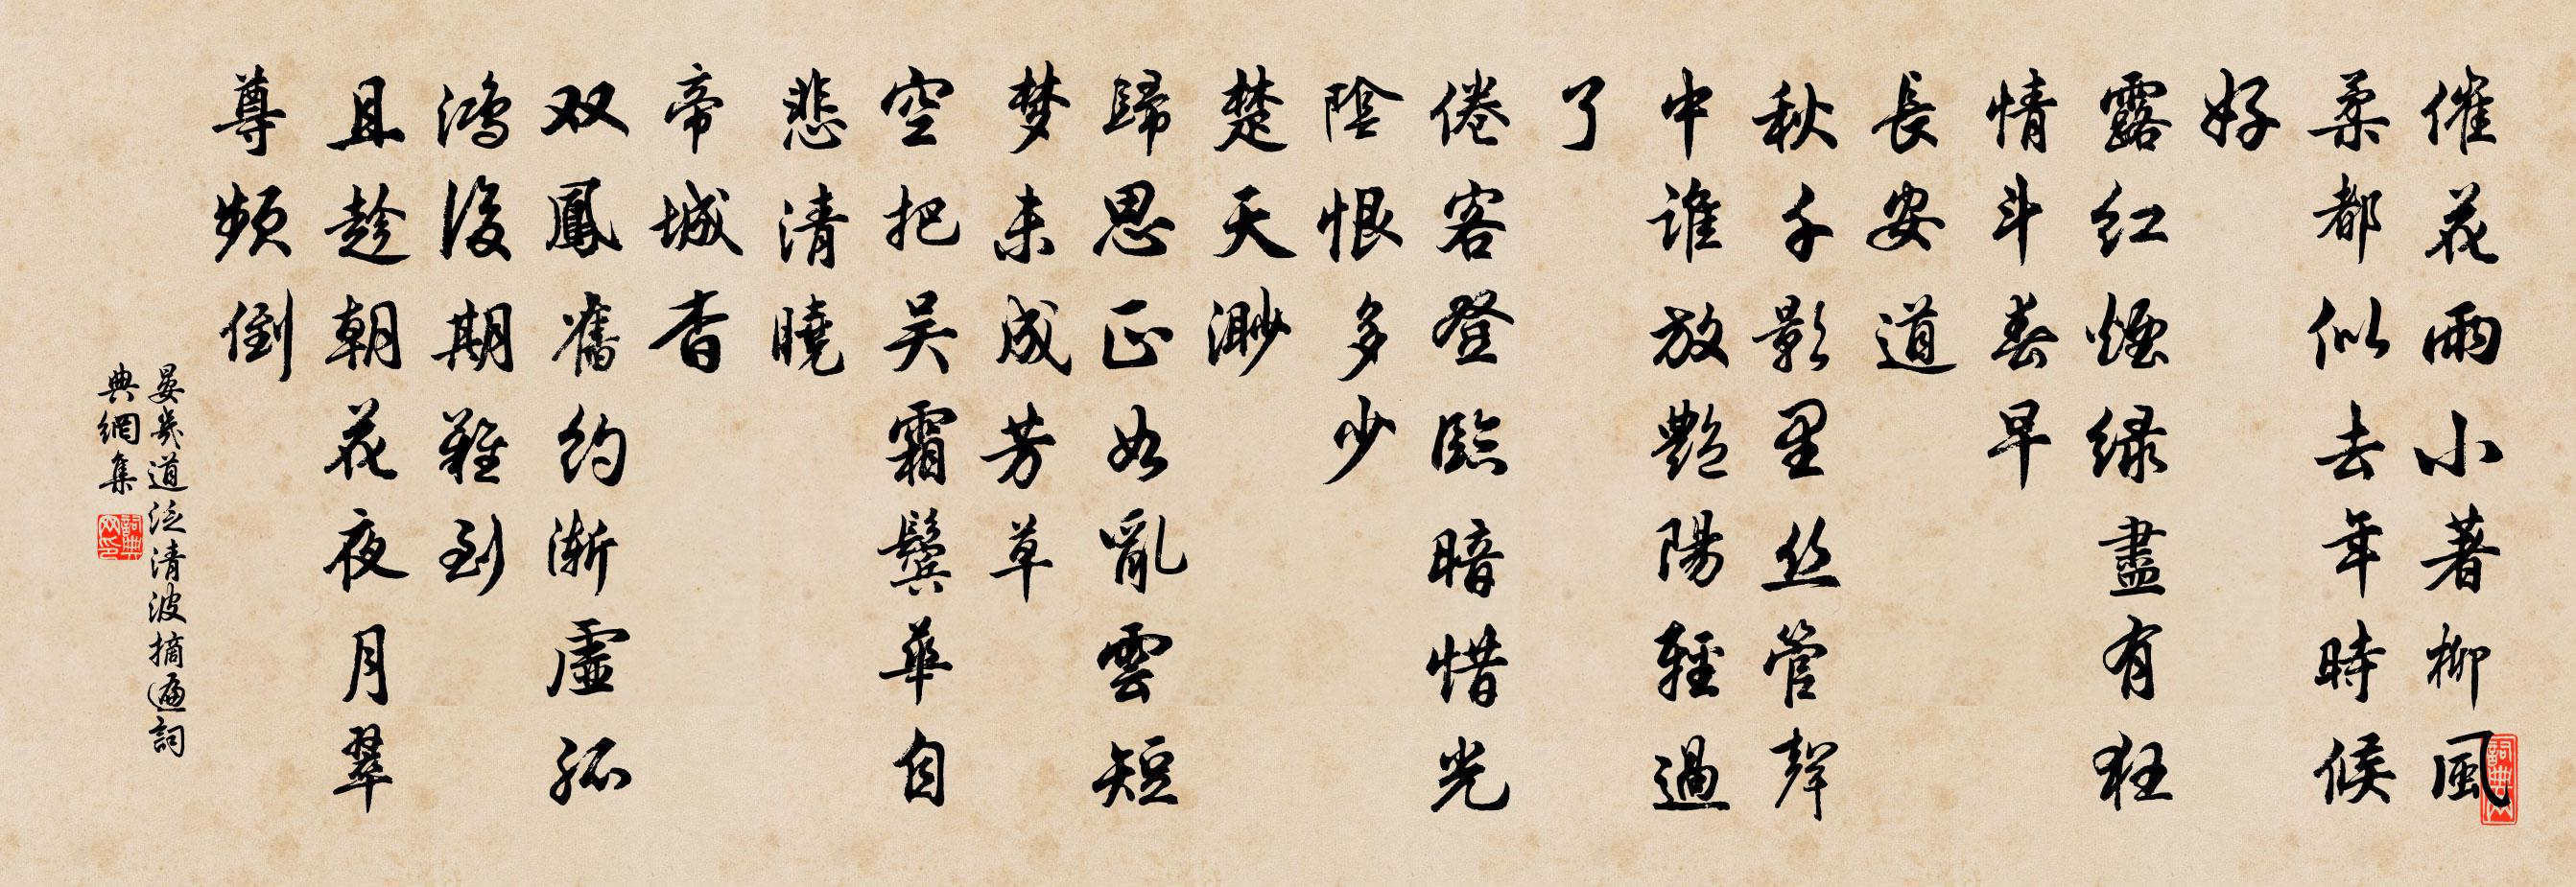 催花雨小著柳風
柔都似去年時候
好
露红煙绿盡有狂
情斗春早
長安道
秋千影里丝管聲
中谁放艶陽輕過
了
倦客登臨暗惜光
陰恨多少
楚天渺
歸思正如亂雲短
梦未成芳草
空把吴霜鬓華自
悲清曉
帝城杳
双鳳舊约渐虚孤
鸿後期難到
且趁朝花夜月翠
尊频倒
晏幾道泛清波摘遍詞
典網集
詞典